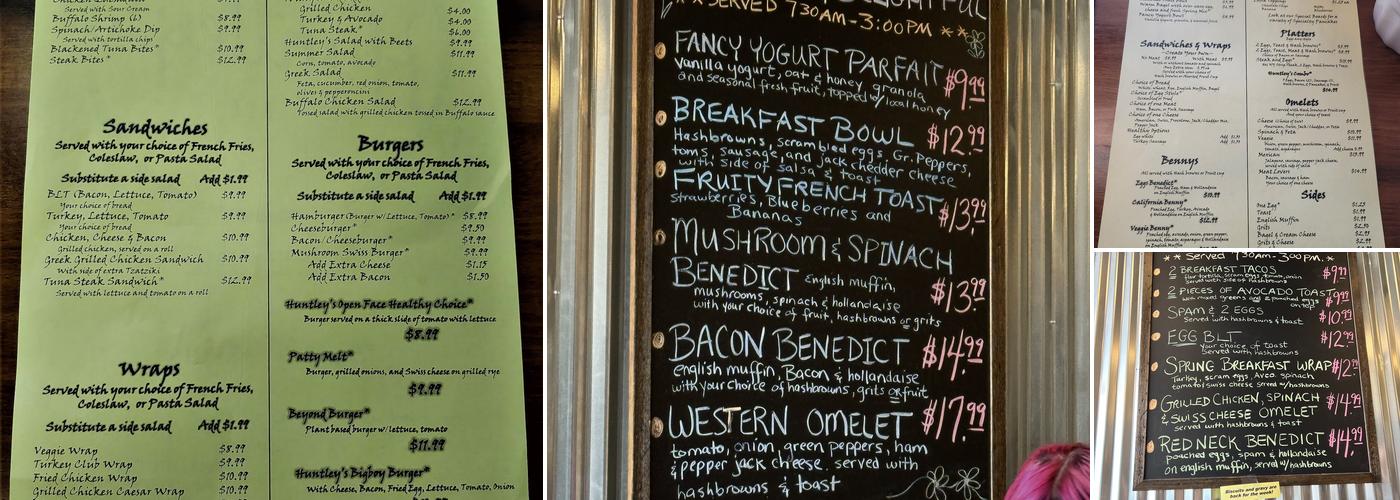 Served with Sour Cream
Buffalo Shrimp (6) $8.99
Spinach/Artichoke Dip $9.99
Served with tortilla chips
Blackened Tuna Bites* $10.99
Steak Bites* $12.99
Sandwiches
Served with your choice of French Fries,
Coleslaw, or Pasta Salad
Substitute a side salad Add $1.99
BLT (Bacon, Lettuce, Tomato) $9.99
Your choice of bread
Turkey, Lettuce, Tomato $9.99
Your choice of bread
Chicken, Cheese & Bacon $10.99
Grilled chicken, served on a roll
Greek Grilled Chicken Sandwich $10.99
With side of extra Tzatziki
Tuna Steak Sandwich* $12.99
Served with lettuce and tomato on a roll
Wraps
Served with your choice of French Fries,
Coleslaw, or Pasta Salad
Substitute a side salad Add $1.99
Veggie Wrap $8.99
Turkey Club Wrap $9.99
Fried Chicken Wrap $10.99
Grilled Chicken Caesar Wrap $10.99
Grilled Chicken $4.00
Turkey & Avocado $4.00
Tuna Steak* $6.00
Huntley's Salad with Beets $9.99
Summer Salad $11.99
Corn, tomato, avocado
Greek Salad $11.99
Feta, cucumber, red onion, tomato,
olives & pepperoncini
Buffalo Chicken Salad $12.99
Tossed salad with grilled chicken tossed in Buffalo sauce
Burgers
Served with your choice of French Fries,
Coleslaw, or Pasta Salad
Substitute a side salad Add $1.99
Hamburger (Burger w/ Lettuce, Tomato)* $8.99
Cheeseburger* $9.50
Bacon/Cheeseburger* $9.99
Mushroom Swiss Burger* $9.99
Add Extra Cheese $1.15
Add Extra Bacon $1.50
Huntley's Open Face Healthy Choice*
Burger served on a thick slide of tomato with lettuce
$8.99
Patty Melt*
Burger, grilled onions, and Swiss cheese on grilled rye
$9.99
Beyond Burger*
Plant based burger w/ lettuce, tomato
$11.99
Huntley's Bigboy Burger*
With Cheese, Bacon, Fried Egg, Lettuce, Tomato, Onion
** SERVED 730AM-3:00PM **
FANCY YOGURT PARFAIT $9.99
vanilla yogurt, oat & honey granola
and seasonal fresh fruit, topped w/ local honey
BREAKFAST BOWL $12.99
Hashbrowns, scrambled eggs, Gr. Peppers,
toms, sausage, and jack chedder cheese
with side of salsa & toast
FRUITY FRENCH TOAST $13.99
Strawberries, Blueberries and
Bananas
MUSHROOM & SPINACH
BENEDICT English muffin, $13.99
mushrooms, spinach & hollandaise
with your choice of fruit, hashbrowns or grits
BACON BENEDICT $14.99
english muffin, Bacon & hollandaise
with your choice of hashbrowns, grits or fruit
WESTERN OMELET $17.99
tomato, onion green peppers, ham
& pepper jack cheese, served with
hashbrowns & toast
Sandwiches & Wraps
Choice of Bread
Choice of Egg Style*
Choice of one Meat
Ham, Bacon, or Pork Sausage
Choice of one Cheese
Healthy Options
Egg white Add $1.50
Turkey Sausage
Bennys
Eggs Benedict*
California Benny*
$12.99
Veggie Benny*
Platters
Huntley's Combo*
$14.99
Omelets
Spinach & Feta
Veggie
Mexican
Meat Lovers
Sides
One Egg* $1.25
Toast
English Muffin
Grits
Bagel & Cream Cheese
Grits & Cheese
** Served 730am-3:00pm. **
2 BREAKFAST TACOS $9.99
flour tortilla, scram eggs, tomato, onion
served with side of hashbrowns
2 PIECES OF AVOCADO TOAST $9.99
with mixed greens and 2 poached eggs
on top
SPAM & 2 EGGS $10.99
served with hashbrowns & toast
EGG BLT $12.99
your choice of toast
Served with hashbrowns
SPRING BREAKFAST WRAP $12.99
Turkey, scram eggs, Avco, spinach
tomato & swiss cheese served w/hashbrowns
GRILLED CHICKEN, SPINACH $14.99
& SWISS CHEESE OMELET
served with hashbrowns & toast
REDNECK BENEDICT $14.99
poached eggs, spam & hollandaise
on english muffin, served w/hashbrowns
Biscuits and gravy are
back for the week!